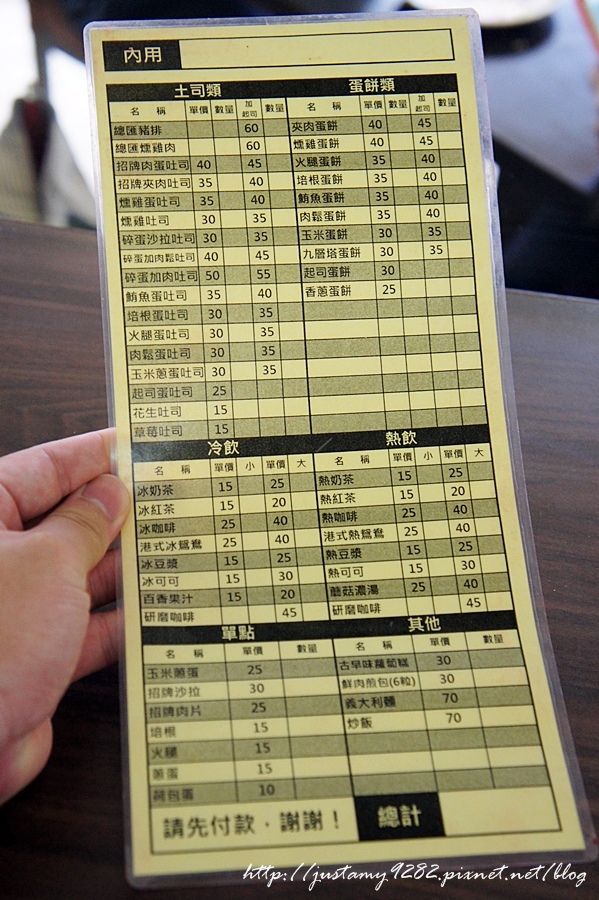 內用
土司類 蛋餅類
名 稱 單價 數量 加起司 數量 名 稱 單價 數量 加起司 數量
總匯豬排 60 夾肉蛋餅 40 45
總匯燻雞肉 60 燻雞蛋餅 40 45
招牌肉蛋吐司 40 45 火腿蛋餅 35 40
招牌夾肉吐司 35 40 培根蛋餅 35 40
燻雞蛋吐司 35 40 鮪魚蛋餅 35 40
燻雞吐司 30 35 肉鬆蛋餅 35 40
碎蛋沙拉吐司 30 35 玉米蛋餅 30 35
碎蛋加肉鬆吐司 40 45 九層塔蛋餅 30 35
碎蛋加肉吐司 50 55 起司蛋餅 30
鮪魚蛋吐司 35 40 香蔥蛋餅 25
培根蛋吐司 30 35
火腿蛋吐司 30 35
肉鬆蛋吐司 30 35
玉米蔥蛋吐司 30 35
起司蛋吐司 25
花生吐司 15
草莓吐司 15
冷飲 熱飲
名 稱 單價 小 單價 大 名 稱 單價 小 單價 大
冰奶茶 15 25 熱奶茶 15 25
冰紅茶 15 20 熱紅茶 15 20
冰咖啡 25 40 熱咖啡 25 40
港式冰鴛鴦 25 40 港式熱鴛鴦 25 40
冰豆漿 15 25 熱豆漿 15 25
冰可可 15 30 熱可可 15 30
百香果汁 15 20 蘑菇濃湯 25 40
研磨咖啡 45 研磨咖啡 45
單點 其他
名 稱 單價 數量 名 稱 單價 數量
玉米蔥蛋 25 古早味蘿蔔糕 30
招牌沙拉 30 鮮肉煎包(6粒) 30
招牌肉片 25 義大利麵 70
培根 15 炒飯 70
火腿 15
蔥蛋 15
荷包蛋 10
請先付款．謝謝！ 總計
http://justamy9282.pixnet.net/blog